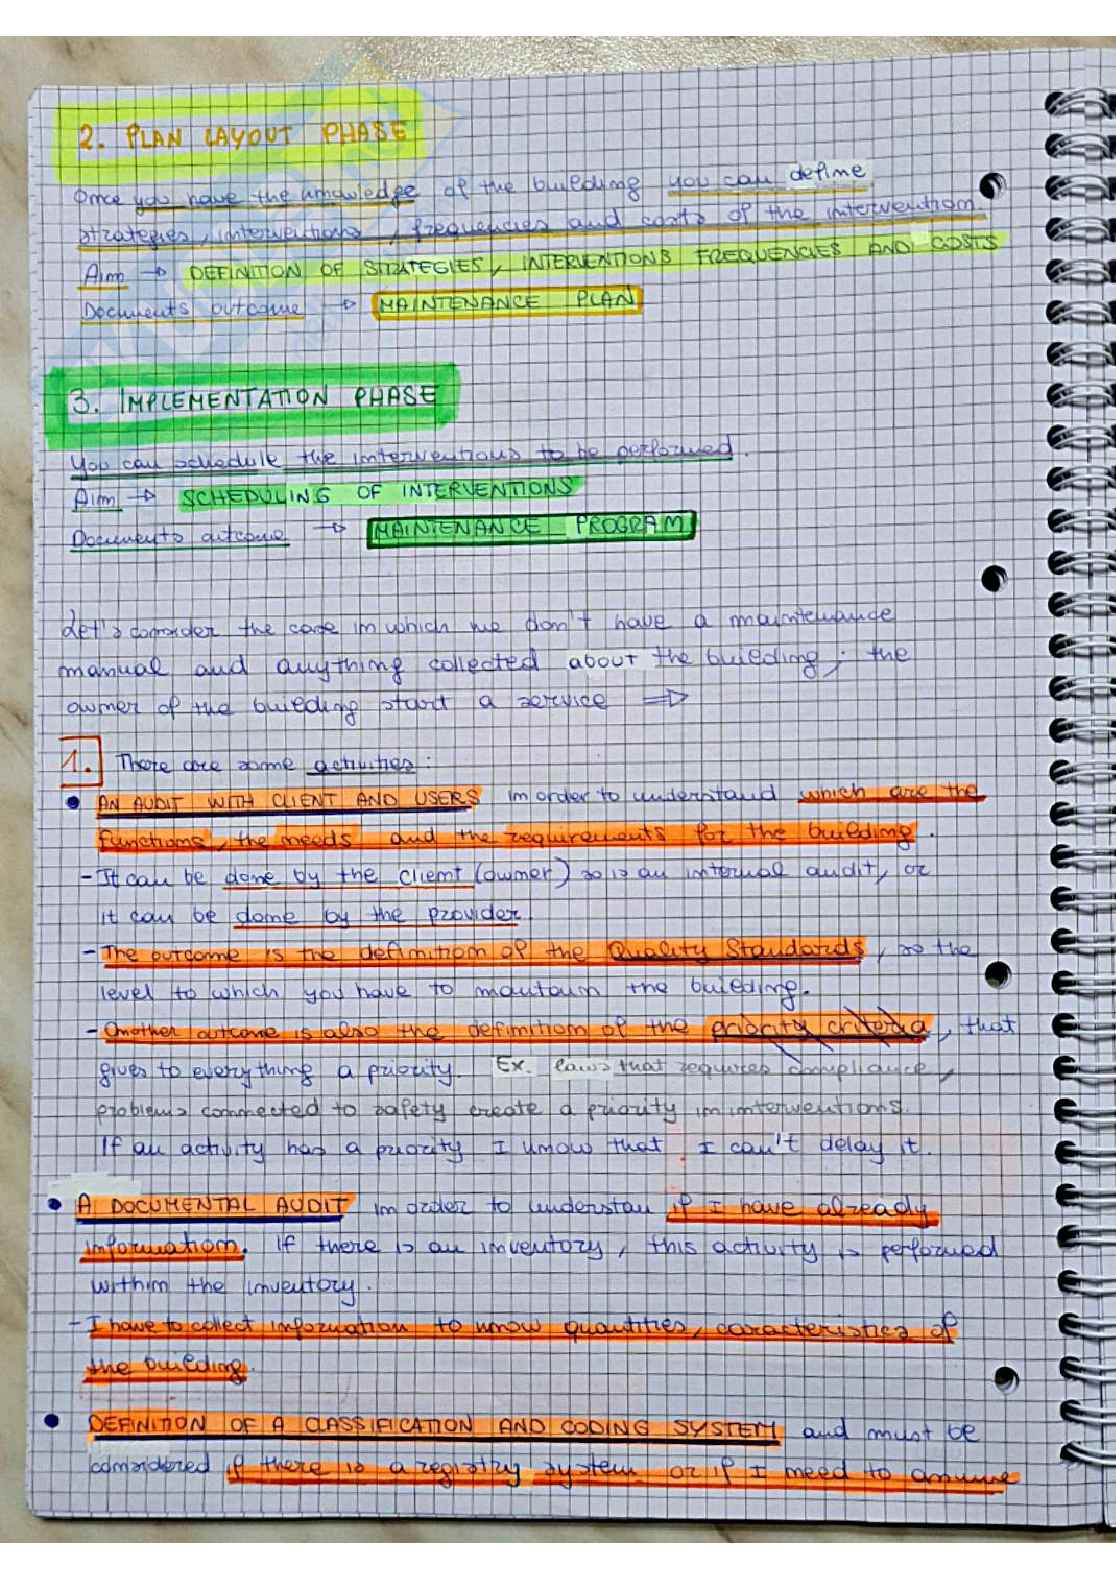 2. PLAN LAYOUT PHASE
Once you have the knowledge of the building you can define
strategies, interventions, frequencies and costs of the intervention.
Aim → DEFINITION OF STRATEGIES, INTERVENTIONS FREQUENCIES AND COSTS
Documents outcome → MAINTENANCE PLAN
3. IMPLEMENTATION PHASE
You can schedule the interventions to be performed.
Aim → SCHEDULING OF INTERVENTIONS
Documents outcome → MAINTENANCE PROGRAM
Let's consider the case in which we don't have a maintenance
manual and anything collected about the building; the
owner of the building start a service ⇒
1. There are some activities:
• AN AUDIT WITH CLIENT AND USERS in order to understand which are the
functions, the needs and the requirements for the building.
- It can be done by the client (owner) so is an internal audit, or
it can be done by the provider.
- The outcome is the definition of the Quality Standards, so the
level to which you have to maintain the building.
- Another outcome is also the definition of the priority criteria, that
gives to everything a priority. Ex. laws that requires compliance,
problems connected to safety create a priority in interventions.
If an activity has a priority I know that I can't delay it.
• A DOCUMENTAL AUDIT in order to understan if I have already
information. If there is an inventory, this activity is performed
within the inventory.
- I have to collect information to know quantities, caracteristics of
the building.
• DEFINITION OF A CLASSIFICATION AND CODING SYSTEM and must be
considered if there is a registry system or if I need to